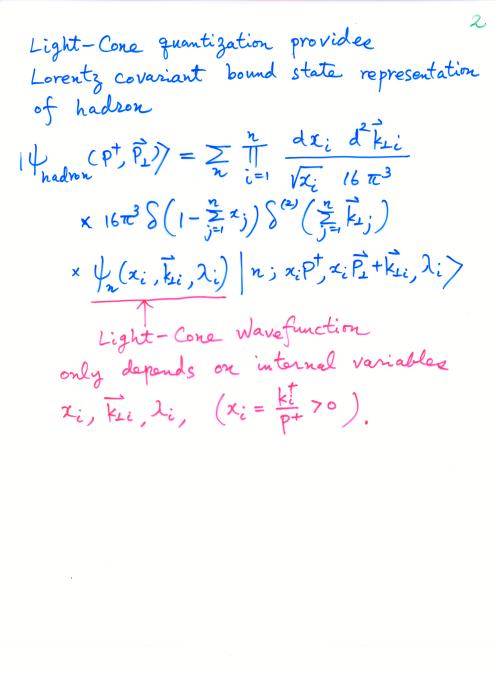 2
Light-Cone quantization provides
Lorentz covariant bound state representation
of hadron
|ψ_hadron (P⁺, P⃗_⊥)⟩ = Σ_n ∏_{i=1}^{n} dx_i d²k⃗_⊥i / √x_i 16π³
× 16π³ δ(1 - Σ_{j=1}^{n} x_j) δ⁽²⁾(Σ_{j=1}^{n} k⃗_⊥j)
× ψ_n(x_i, k⃗_⊥i, λ_i) | n; x_i P⁺, x_i P⃗_⊥ + k⃗_⊥i, λ_i ⟩
Light-Cone Wavefunction
only depends on internal variables
x_i, k⃗_⊥i, λ_i, (x_i = k_i⁺/P⁺ > 0).